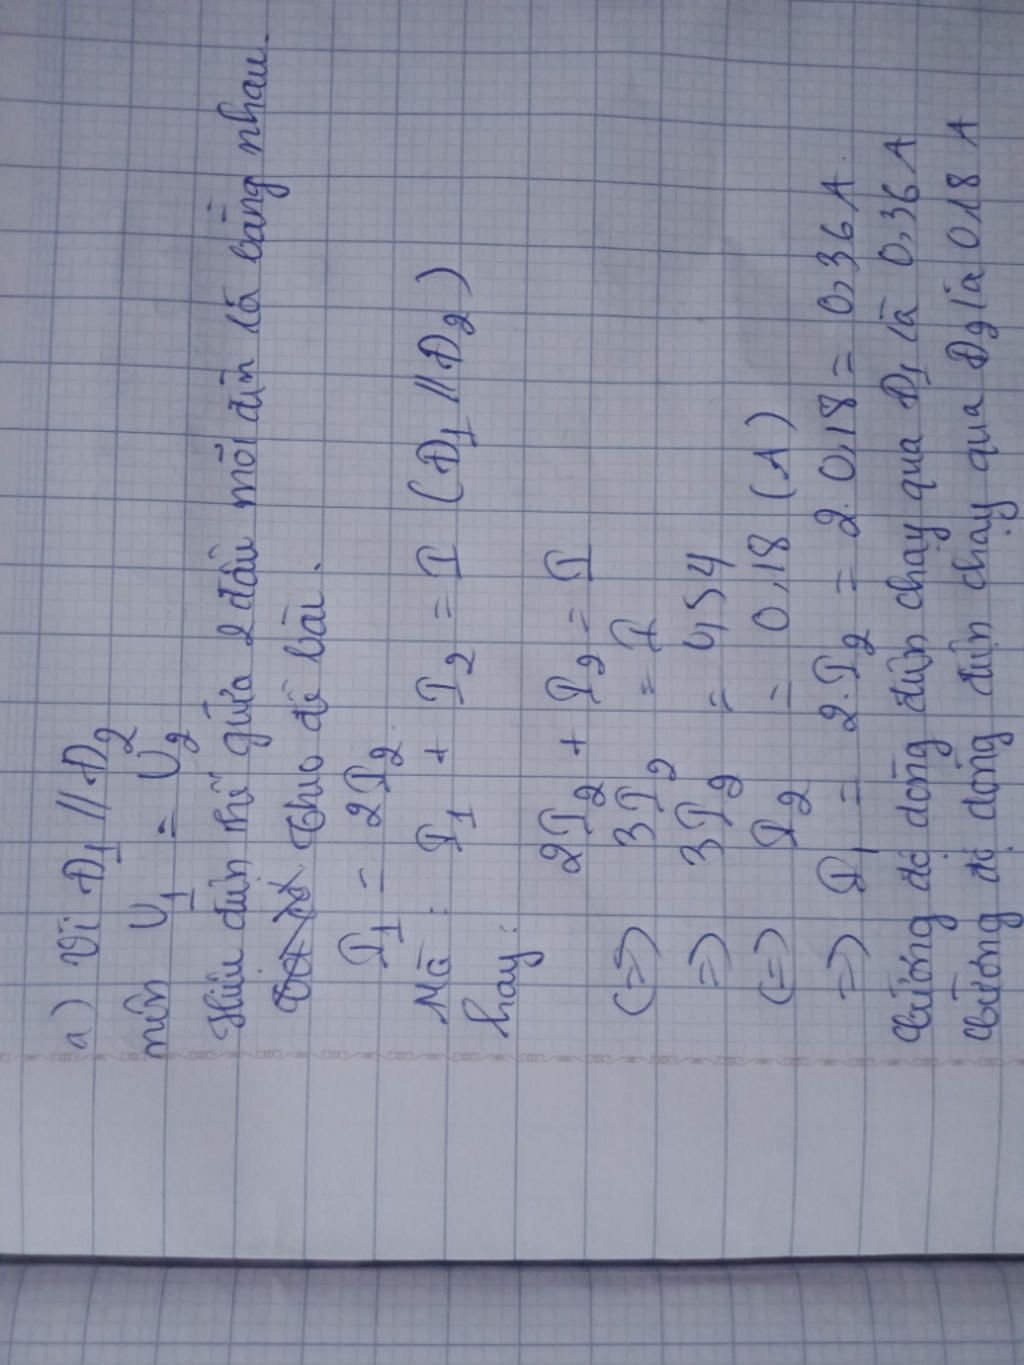 a) Vì Đ1 // Đ2
nên U1 = U2
Hiệu điện thế giữa 2 đầu mỗi đèn là bằng nhau.
Theo đề bài.
I1 = 2I2
Mà: I1 + I2 = I (Đ1 // Đ2)
hay:
2I2 + I2 = I
(=) 3I2 = I
=) 3I2 = 0,54
(=) I2 = 0,18 (A)
=) I1 = 2.I2 = 2.0,18 = 0,36 A.
Cường độ dòng điện chạy qua Đ1 là 0,36 A
Cường độ dòng điện chạy qua Đ2 là 0,18 A